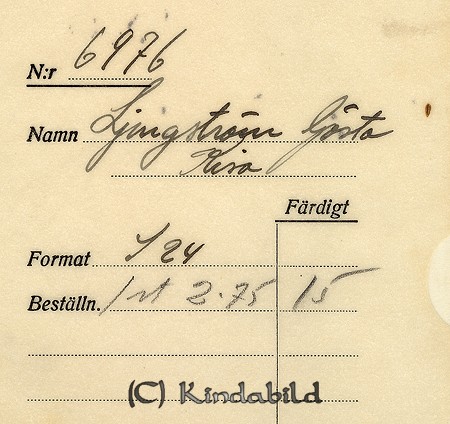 N:r 6976
Namn Ljungström Gösta
Kisa
Färdigt
Format S 24
Beställn. 1 st 2.75 15
(C) Kindabild